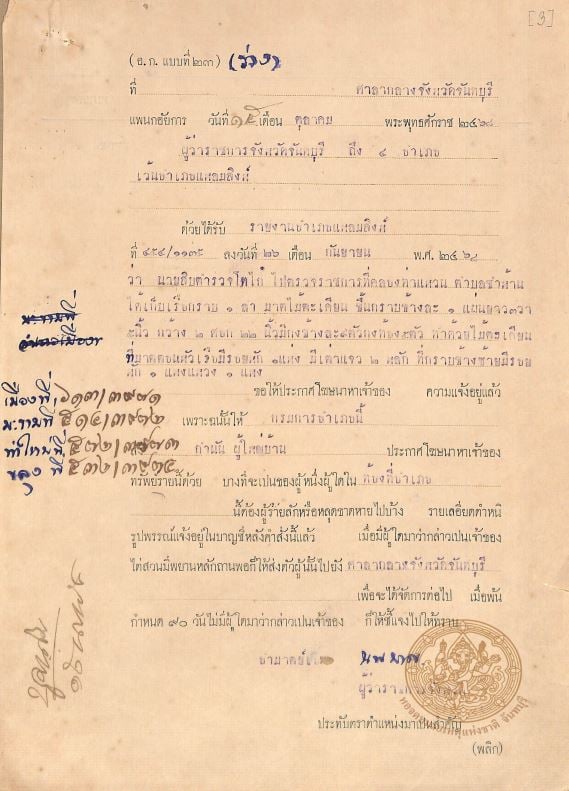 [3]
(อ.ก. แบบที่ ๒๓) (ร่าง)
ที่ ศาลากลางจังหวัดจันทบุรี
แพนกอัยการ วันที่ ๑๕ เดือน ตุลาคม พระพุทธศักราช ๒๔๖๘
ผู้ว่าราชการจังหวัดจันทบุรี ถึง ๔ อำเภอ
เว้นอำเภอแหลมสิงห์
ด้วยได้รับ รายงานอำเภอแหลมสิงห์
ที่ ๔๕๔/๑๑๓๕ ลงวันที่ ๒๖ เดือน กันยายน พ.ศ. ๒๔๖๘
ว่า นายสิบตำรวจโตไก่ ไปตรวจราชการที่คลองท่าแหวน ตำบลชำห้าน
ได้เก็บเรือกราบ ๑ ลำ มาดไม้ตะเคียน ขึ้นกราบข้างละ ๑ แผ่นยาว ๓ วา
๕ นิ้ว กว้าง ๒ ศอก ๒๒ นิ้วมีกงข้างละ ๙ ตัวกงท้อง ๕ ตัว ทำด้วยไม้ตะเคียน
ที่มาดตอนหัวเรือมีรอยหัก ๑ แห่ง มีเต่าแจว ๒ หลัก ที่กราบข้างซ้ายมีรอย
หัก ๑ แห่งแหว่ง ๑ แห่ง
ขอให้ประกาศโฆษนาหาเจ้าของ ความแจ้งอยู่แล้ว
เพราะฉนั้นให้ กรมการอำเภอนี้
กำนัน ผู้ใหญ่บ้าน ประกาศโฆษนาหาเจ้าของ
ทรัพย์รายนี้ด้วย บางทีจะเปนของผู้หนึ่งผู้ใดใน ท้องที่อำเภอ
นี้ต้องผู้ร้ายลักหรือหลุดขาดหายไปบ้าง รายเลอียดตำหนิ
รูปพรรณ์แจ้งอยู่ในบาญชีหลังคำสั่งนี้แล้ว เมื่อมีผู้ใดมาว่ากล่าวเปนเจ้าของ
ไต่สวนมีพยานหลักถานพอก็ให้ส่งตัวผู้นั้นไปยัง ศาลากลางจังหวัดจันทบุรี
เพื่อจะได้จัดการต่อไป เมื่อพ้น
กำหนด ๙๐ วันไม่มีผู้ใดมาว่ากล่าวเปนเจ้าของ ก็ให้ชี้แจงไปให้ทราบ
อำมาตย์
ผู้ว่าราชการจังหวัด
ประทับตราตำแหน่งมาเปนสำคัญ
(พลิก)
เมืองที่
มะขามที่
ท่าใหม่ที่
ขลุง ที่
หอจดหมายเหตุแห่งชาติ จันทบุรี